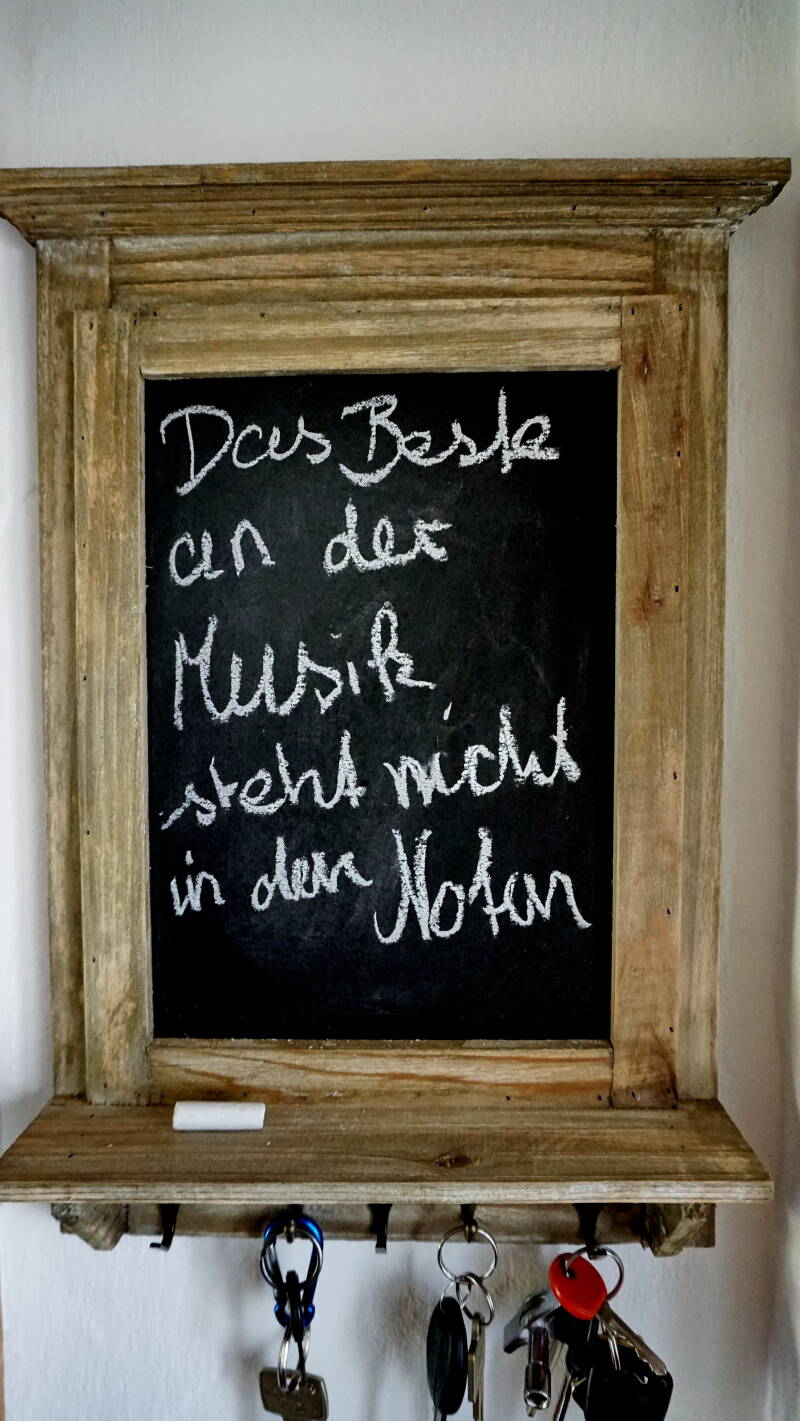 Das Beste
an der
Musik
steht nicht
in den Noten